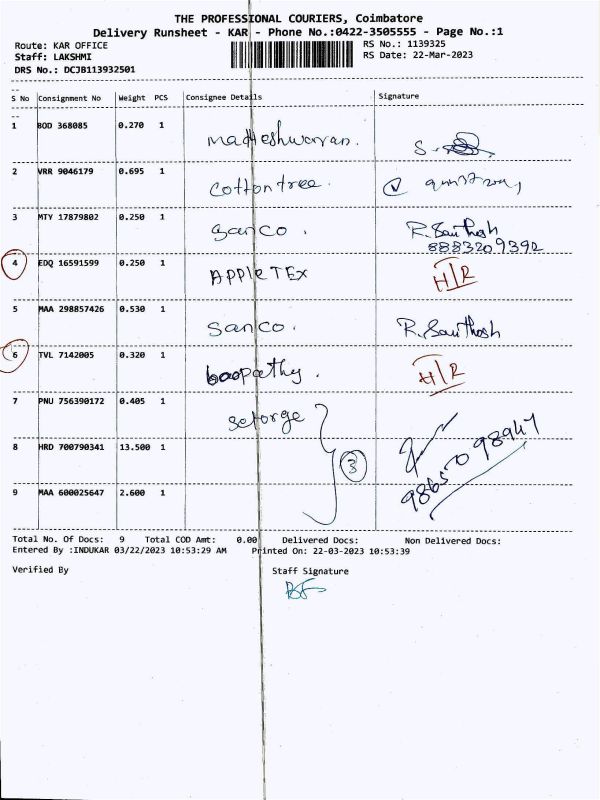 THE PROFESSIONAL COURIERS, Coimbatore
Delivery Runsheet - KAR - Phone No.:0422-3505555 - Page No.:1
Route: KAR OFFICE
RS No.: 1139325
Staff: LAKSHMI
RS Date: 22-Mar-2023
DRS No.: DCJB113932501
S No Consignment No Weight PCS Consignee Details Signature
1 BOD 368085 0.270 1 Madheshwaran.
2 VRR 9046179 0.695 1 cotton tree.
3 MTY 17879802 0.250 1 Sanco. R. Santhosh
8883209392
4 EDQ 16591599 0.250 1 APPle TEX H/R
5 MAA 298857426 0.530 1 Sanco. R. Santhosh
6 TVL 7142005 0.320 1 boopathy. H/R
7 PNU 756390172 0.405 1 Seforge
8 HRD 700790341 13.500 1 3
9 MAA 600025647 2.600 1
Total No. Of Docs: 9 Total COD Amt: 0.00 Delivered Docs: Non Delivered Docs:
Entered By :INDUKAR 03/22/2023 10:53:29 AM Printed On: 22-03-2023 10:53:39
Verified By Staff Signature